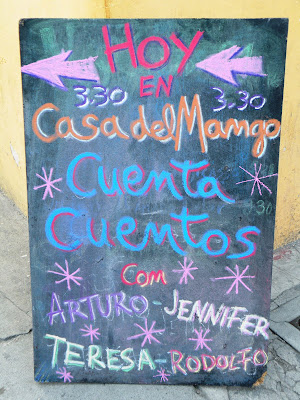 Hoy
EN
3:30 3:30
Casa del Mango
Cuenta
Cuentos
Com
ARTURO-JENNIFER
TERESA-RODOLFO